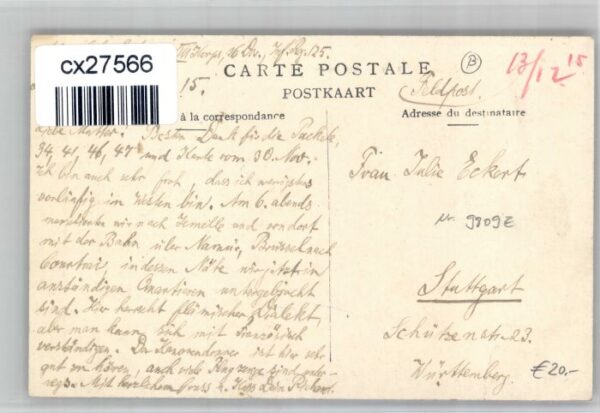 XIII Korps, 26 Div., Inf. Rg. 125.
cx27566
15.
CARTE POSTALE
POSTKAART
B
13/12 15
Feldpost.
à la correspondance
Adresse du destinataire
Liebe Mutter! Besten Dank für die Packete,
34, 41, 46, 47 und Karte vom 30. Nov.
Ich bin auch sehr froh, dass ich wenigstens
vorläufig im Westen bin. Am 6. abends
marschierten wir nach Jemelle und von dort
mit der Bahn über Namur, Brüssel nach
Courtrai, in dessen Nähe wir jetzt in
anständigen Quartieren untergebracht
sind. Hier herrscht flämischer Dialekt,
aber man kann sich mit Französisch
verständigen. Der Kanonendonner ist hier sehr
gut zu hören, auch viele Flugzeuge sind unter-
wegs. Mit herzlichem Gruss u. Kuss Dein Richard.
Frau Julie Eckert
Nr. 9809E
Stuttgart
Schützenstr. 23.
Württemberg.
€20.-